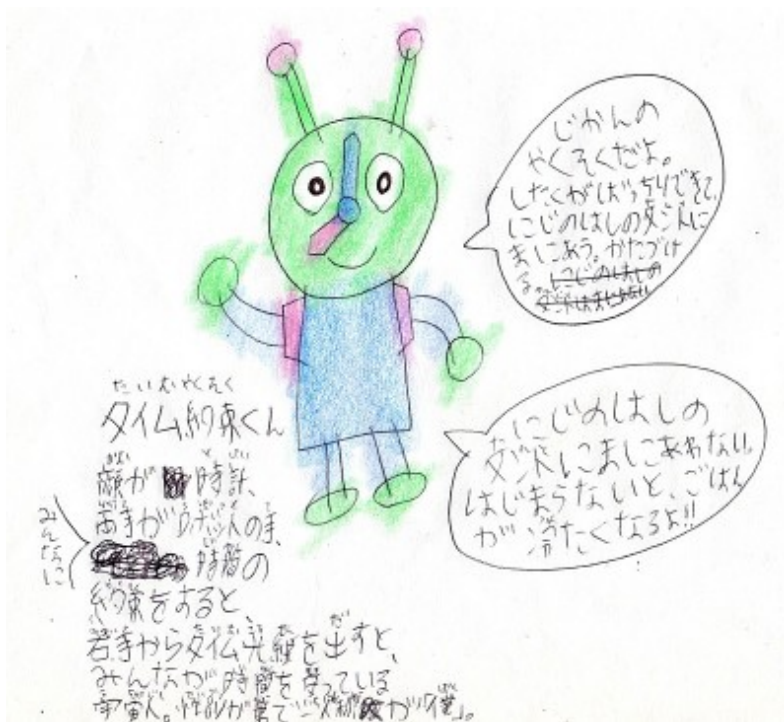 じかんの
やくそくだよ。
したくがばっちりできて、
にじのはしの交流に
まにあう。かたづけ
る。
にじのはしの
交流にまにあわない。
はじまらないと、ごはん
が冷たくなるよ!!
たいむやくそく
タイム約束くん
かお とけい
顔が 時計、
両手が の手、
みんなに
時間の
約束をすると、
右手からタイム光線を出すと、
みんなが時間を守っている
宇宙人。